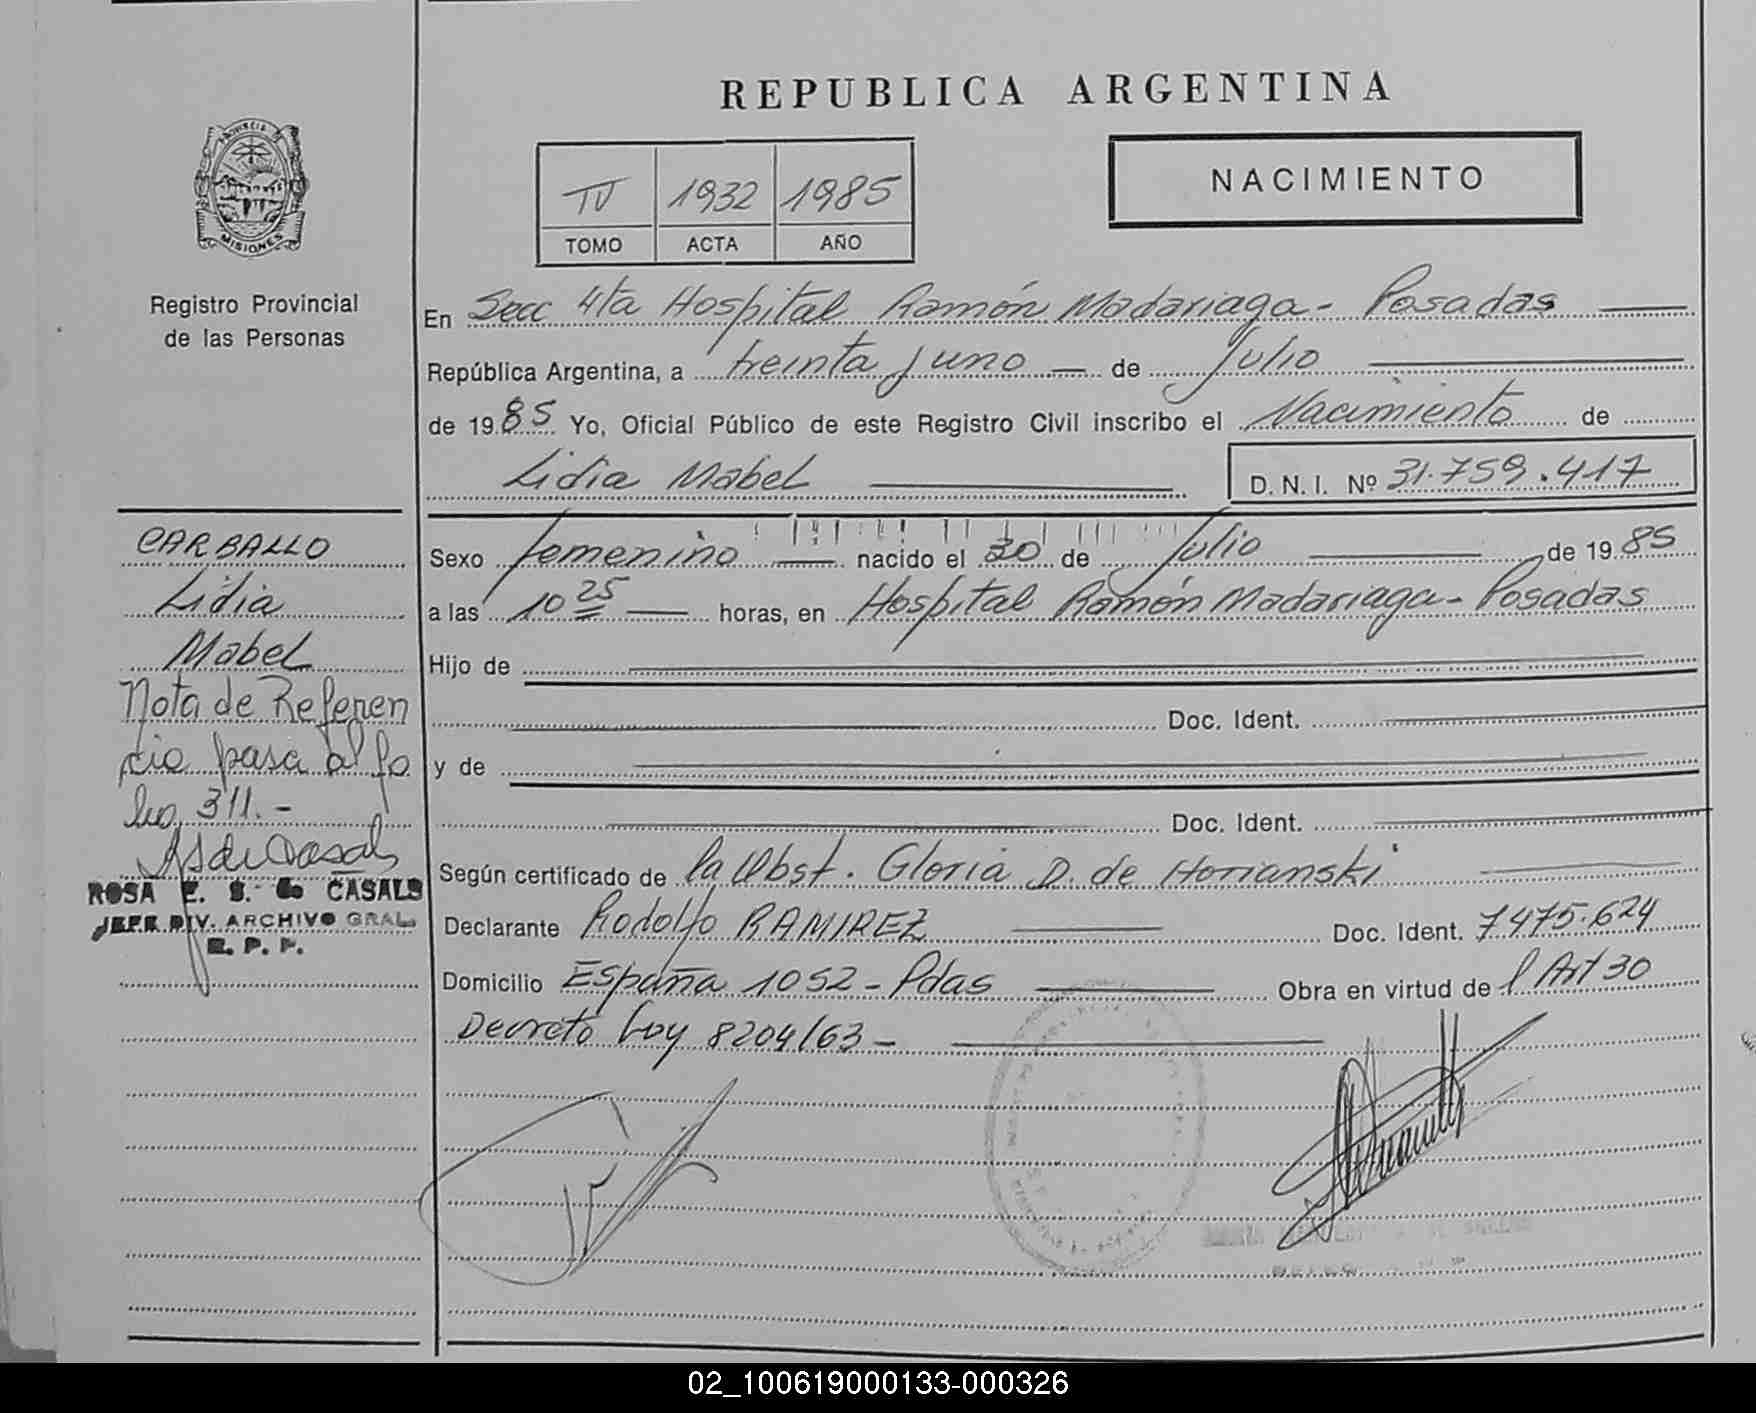 REPUBLICA ARGENTINA
PROVINCIA DE
MISIONES
Registro Provincial
de las Personas
IV 1932 1985
TOMO ACTA AÑO
NACIMIENTO
En Secc 4ta Hospital Ramón Madariaga - Posadas
República Argentina, a treinta y uno de Julio
de 1985 Yo, Oficial Público de este Registro Civil inscribo el Nacimiento de
Lidia Mabel
D. N. I. Nº 31.759.417
CARBALLO
Lidia
Mabel
Nota de Referen
cia pasa al fo
lio 311.-
ROSA E. S. de CASALS
JEFE DIV. ARCHIVO GRAL.
R. P. P.
Sexo femenino nacido el 30 de Julio de 1985
a las 10 25 horas, en Hospital Ramón Madariaga - Posadas
Hijo de
Doc. Ident.
y de
Doc. Ident.
Según certificado de la Obst. Gloria D. de Horianski
Declarante Rodolfo RAMIREZ Doc. Ident. 7475.624
Domicilio España 1052 - Pdas Obra en virtud de l Art 30
Decreto Ley 8204/63 -
02_100619000133-000326